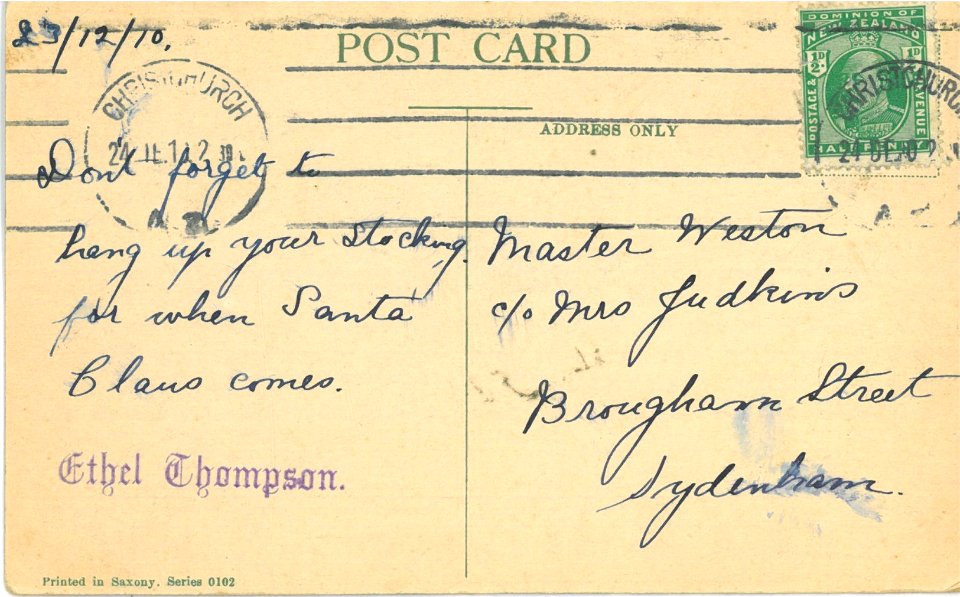 23/12/10.
POST CARD
DOMINION OF
NEW ZEALAND
½D
1D
POSTAGE & REVENUE
HALF PENNY
CHRISTCHURCH
CHRISTCHURCH
ADDRESS ONLY
Dont forget to
hang up your stocking
for when Santa
Claus comes.
Ethel Thompson.
Master Weston
c/o Mrs Judkins
Brougham Street
Sydenham.
Printed in Saxony. Series 0102